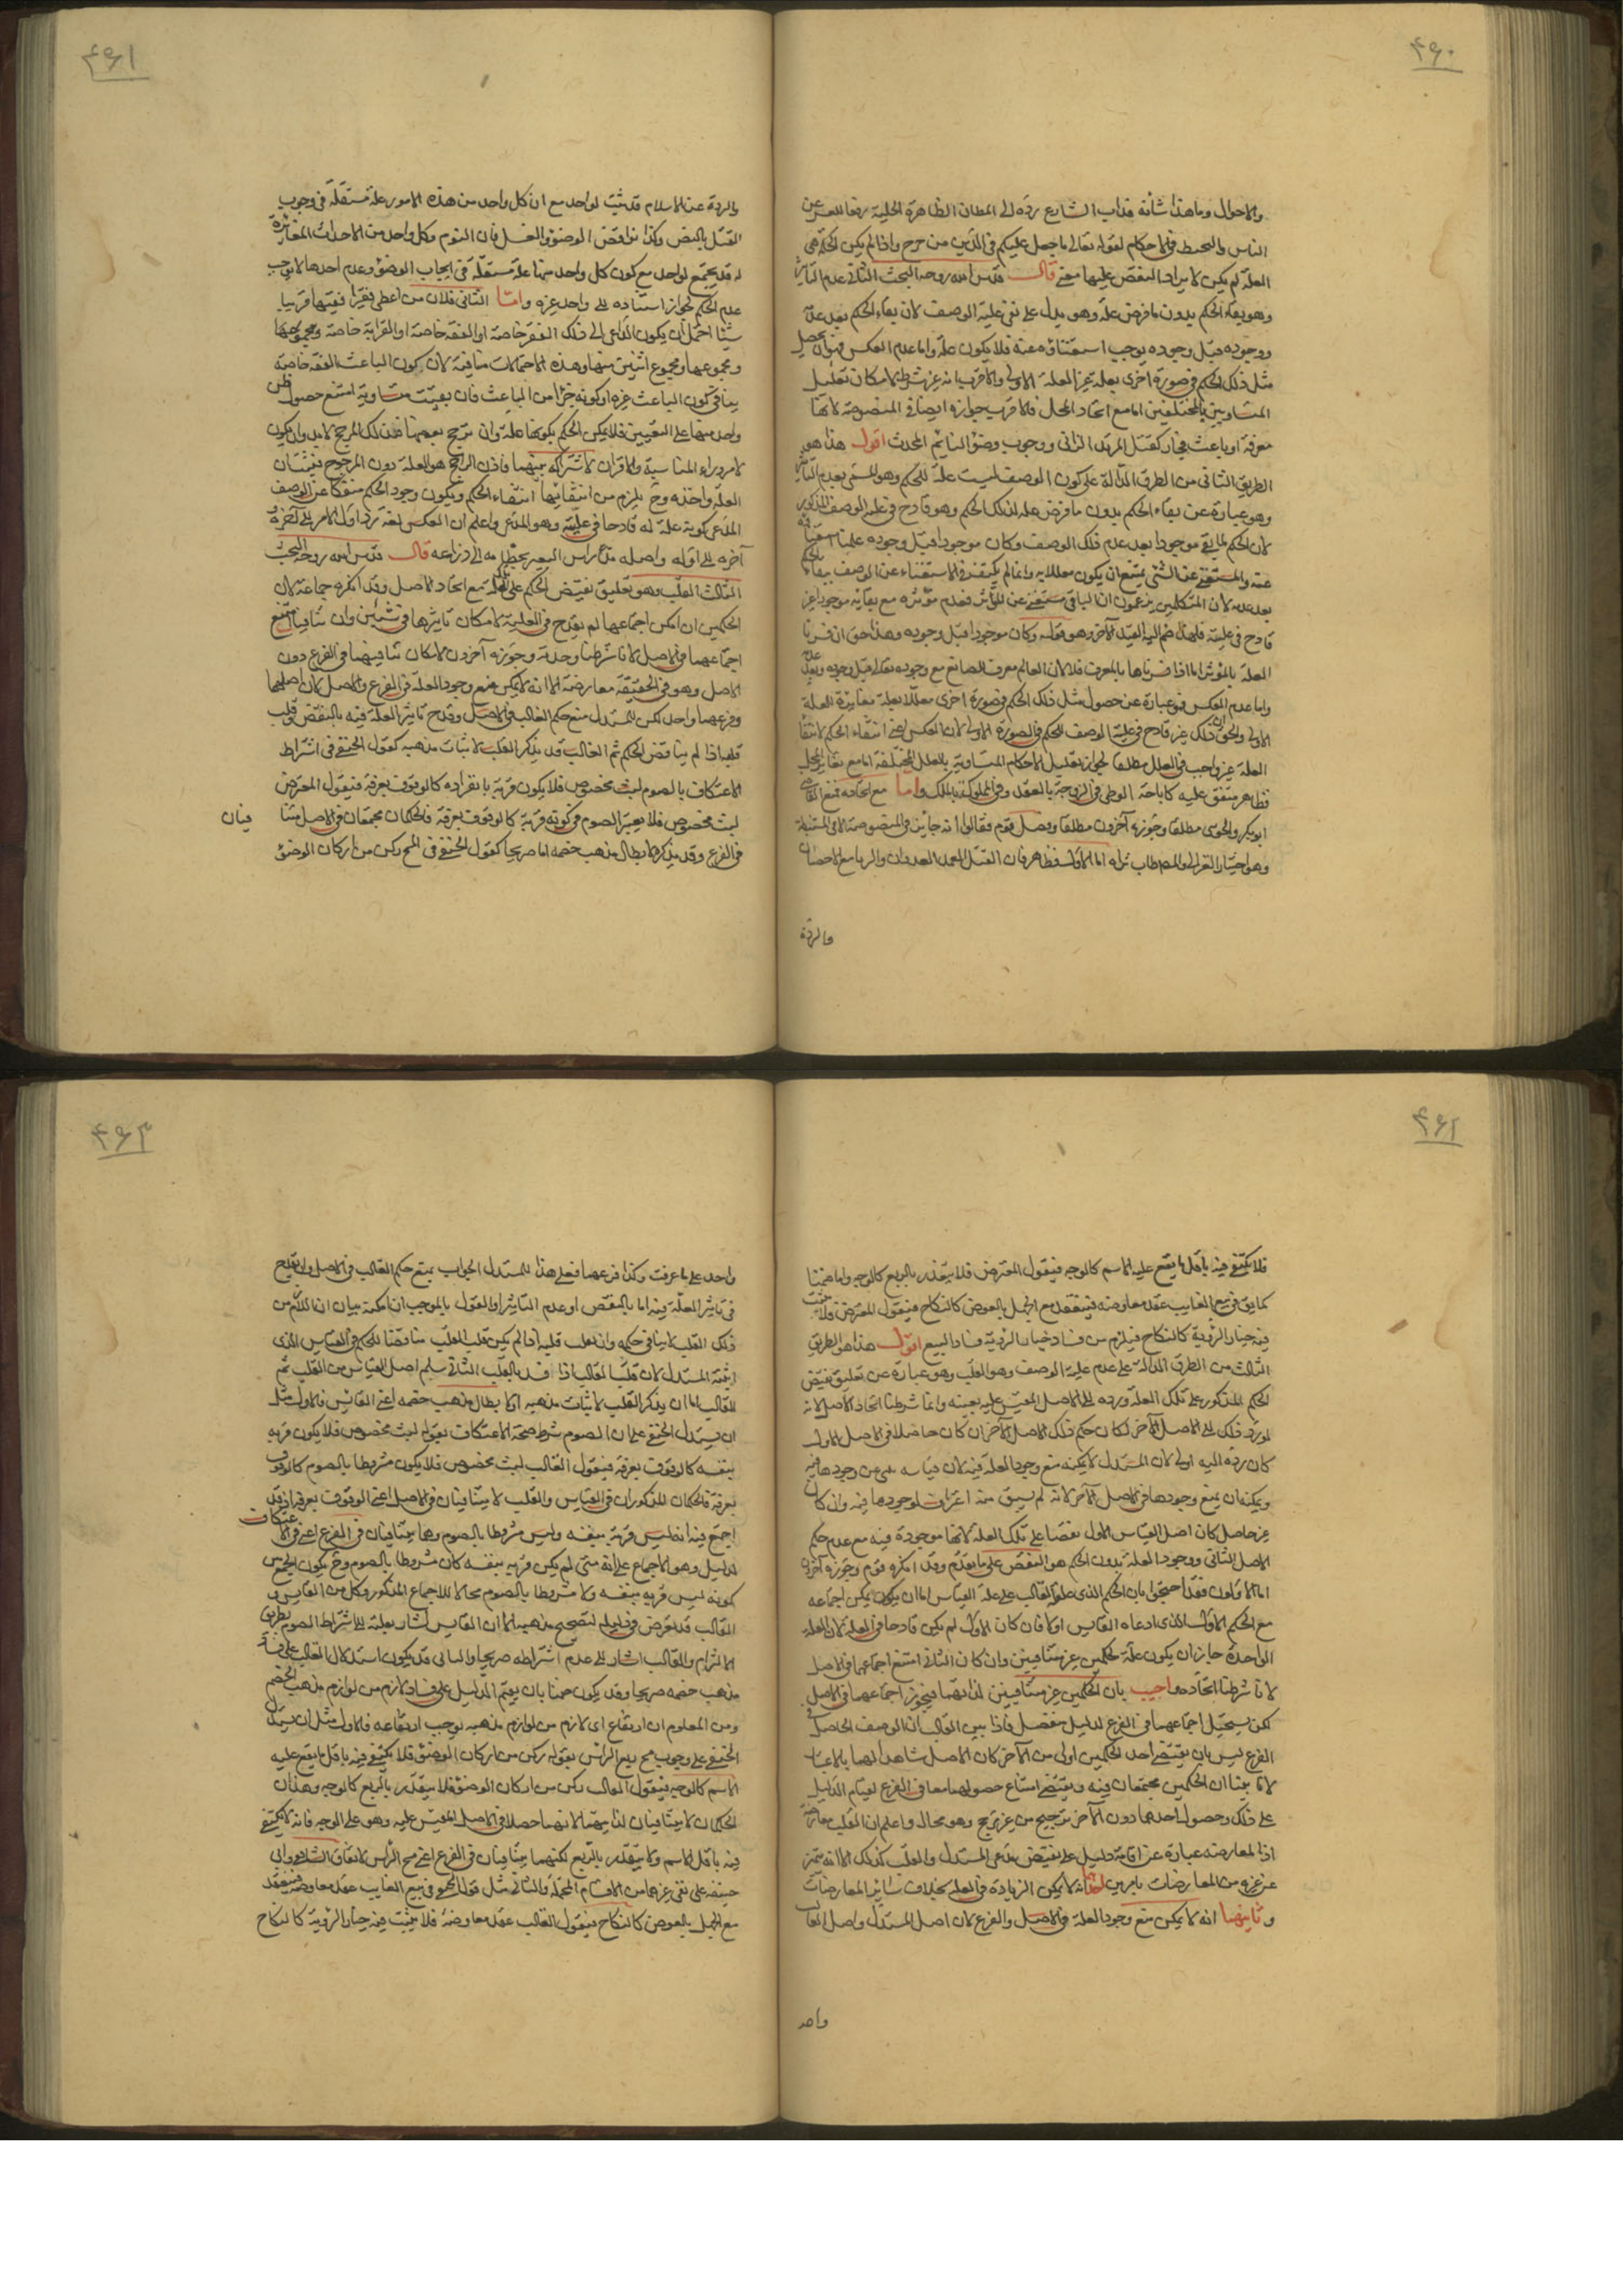 ۴۶۰
والاحوال وما هذا شأنه فدأب الشارع رده الى المظان الظاهرة الجلية رفعا للعسر عن
الناس والتخبط فى الاحكام لقوله تعالى ما جعل عليكم فى الدين من حرج واذا لم يكن الحكمة هى
العلة لم يكن لايراد النقض عليها معنى قال قدس الله روحه البحث الثانى عدم التأثير
وهو بقاء الحكم بدون ما فرض علة وهو يدل على نفى علية الوصف لان بقاء الحكم بعد علة
ووجوده قبل وجوده يوجب استغناؤه عنه فلا يكون علة واما عدم العكس فهو ان يحصل
مثل ذلك الحكم فى صورة اخرى بعلة غير العلة الاولى والاقرب انه غير شرط لامكان تعليل
المتساويين بالمختلفين اما مع اتحاد المحل فالاقرب جوازه ايضا فى المنصوصة لانها
معرفة او باعث فجاز كقتل المرتد الزانى ووجوب وضؤ النائم المحدث اقول هذا هو
الطريق الثانى من الطرق الدالة على كون الوصف ليست علة للحكم وهو المسمى بعدم التأثير
وهو عبارة عن بقاء الحكم بدون ما فرض علة لذلك الحكم وهو قادح فى علية الوصف المذكور
لان الحكم لما بقى موجودا بعد عدم ذلك الوصف وكان موجودا قبل وجوده علمنا استغناؤه
عنه والمستغنى عن الشئ يمتنع ان يكون معللا به وانما لم يكتف فى الاستغناء عن الوصف ببقاء الحكم
بعد عدمه لان المتكلمين يزعمون ان الباقى مستغنى عن المؤثر فعدم مؤثره مع بقائه موجودا غير
قادح فى علية فلهذا ضم اليه القيد الآخر وهو قوله وكان موجودا قبل وجوده وهذا حق ان فسرنا
العلة بالمؤثر اما اذا فسرناها بالمعرف فلا لان العالم معرف الصانع مع وجوده تعالى قبل وجوده وبعد عدمه
واما عدم العكس فهو عبارة عن حصول مثل ذلك الحكم فى صورة اخرى معللا بعلة مغايرة العلة
الاولى والحق ان ذلك غير قادح فى علية الوصف للحكم فى الصورة الاولى لان العكس اعنى انتفاء الحكم لانتفاء
العلة غير واجب فى العلل مطلقا لجواز تعليل الاحكام المتساوية بالعلل المختلفة اما مع تغاير المحل
فظاهر متفق عليه كاباحة الوطى فى الزوجة بالعقد وفى المملوكة بالملك واما مع اتحاده فمنع القاضى
ابو بكر والجوينى مطلقا وجوزه آخرون مطلقا وفصل قوم فقالوا انه جايز فى المنصوصة لا فى المستنبطة
وهو اختيار الغزالى والمص طاب ثراه اما الاول فظاهر فان القتل العمد العدوان والزنا مع الاحصان
والردة
۴۶۱
والردة عن الاسلام قد ثبت لواحد مع ان كل واحد من هذه الامور علة مستقلة فى وجوب
القتل بالنص وكذا نواقض الوضوؤ والغسل فان النوم وكل واحد من الاحداث المغايرة
له قد يجتمع لواحد مع كون كل واحد منها علة مستقلة فى ايجاب الوضؤ وعدم احدها لا يوجب
عدم الحكم لجواز استناده الى واحد غيره واما الثانى فلان من اعطى فقيرا فقيها قريبا
شيئا احتمل ان يكون الداعى الى ذلك الفقر خاصة او الفقه خاصة او القرابة خاصة ومجموعها
ومجموعها ومجموع اثنين منها وهذه الاحتمالات متنافية لان كون الباعث الفقه خاصة
ينافى كون الباعث غيره او كونه جزا من الباعث فان بقيت متساوية امتنع حصول ظن
واحد منها على التعيين فلا يمكن الحكم بكونها علة وان ترجح بعضها فذلك المرجح لا بد وان يكون
لامر وراء المناسبة والاقران لاشتراكه بينهما فاذن الراجح هو العلة دون المرجوح فيتسان
العلة واحدة وح يلزم من انتفائها انتفاء الحكم ويكون وجود الحكم منفكا عن الوصف
المدعى كونه علة له قادحا فى علية وهو المدعى واعلم ان العكس لغة رد اول الامر الى آخره و
آخره الى اوله واصله مد راس البعير بخطامه الى ذراعه قال قدس الله روحه البحث
الثالث القلب وهو تعليق نقيض الحكم على العلة مع اتحاد الاصل وقد انكره جماعة لان
الحكمين ان امكن اجتماعهما لم يقدح فى العلية لامكان تاثيرها فى شيئين وان تنافيا امتنع
اجتماعهما فى الاصل لانا شرطنا وحدته وجوزه آخرون لامكان تنافيهما فى الفرع دون
الاصل وهو فى الحقيقة معارضة الا انه لا يمكن منع وجود العلة فى الفرع والاصل لان اصلهما
وفرعهما واحد لكن للمستدل منع حكم القالب فى الاصل وقدح تاثير العلة فيه بالنقض وقلب
قلبه اذا لم يناقض الحكم ثم القالب قد يذكر القلب لاثبات مذهبه كقول الحنفى فى اشتراط
الاعتكاف بالصوم لبث مخصوص فلا يكون قربة بانفراده كالوقوف بعرفة فيقول المعترض
لبث مخصوص فلا يعتبر الصوم فى كونه قربة كالوقوف بعرفة فالحكمان مجتمعان فى الاصل متنا
فيان
فى الفرع وقد يذكره لابطال مذهب خصمه اما صريحا كقول الحنفى فى المسح ركن من اركان الوضوؤ
۴۶۲
فلا يكتفى فيه باقل ما يقع عليه الاسم كالوجه فيقول المعترض فلا يتقدر بالربع كالوجه واما ضمنا
كما يق فى بيع الغايب عقد معاوضة فينعقد مع الجهل بالعوض كالنكاح فيقول المعترض فلا يثبت
فيه خيار الرؤية كالنكاح فيلزم من فساد خيار الرؤية فساد البيع اقول هذا هو الطريق
الثالث من الطرق الدالة على عدم علية الوصف وهو القلب وهو عبارة عن تعليق نقيض
الحكم المذكور على تلك العلة ورده الى الاصل المقيس عليه بعينه وانما شرطنا اتحاد الاصل لانه
لو رد ذلك الى الاصل الآخر لكان حكم ذلك الاصل الآخر ان كان حاصلا فى الاصل الاول
كان رده اليه اولى لان المستدل لا يمكنه منع وجود العلة فيه لان قياسه مبنى عن وجودها فيه
ويمكنه ان يمنع وجودها فى الاصل الآخر لانه لم يسبق منه اعتراف لوجودها فيه وان كان
غير حاصل كان اصل القياس الاول نقضا على تلك العلة لانها موجودة فيه مع عدم حكم
الاصل الثانى ووجود العلة بدون الحكم هو النقض على ما تقدم وقد انكره قوم وجوزه آخرون
اما الاولون فقد احتجوا بان الحكم الذى علقه القالب على علة القياس اما ان يكون يمكن اجتماعه
مع الحكم الاول الذى ادعاه القايس او لا فان كان الاول لم يكن قادحا فى العلة لان العلة
الواحدة جاز ان يكون علة لحكمين غير متنافيين وان كان الثانى امتنع اجتماعهما فى الاصل
لانا شرطنا اتحاده واجيب بان الحكمين غير متنافيين لذاتهما فيجوز اجتماعهما فى الاصل
لكن يستحيل اجتماعهما فى الفرع لدليل منفصل فاذا بين القالب ان الوصف الحاصل فى
الفرع ليس بان يقتضى احد الحكمين اولى من الآخر كان الاصل شاهدا لهما بالاعتبار
لانا بينا ان الحكمين مجتمعان فيه ويقتضى امتناع حصولهما معا فى الفرع لقيام الدليل
على ذلك وحصول احدهما دون الآخر ترجيح من غير مرجح وهو محال واعلم ان القلب معارضة
اذ المعارضة عبارة عن اقامة دليل على نقيض مدعى المستدل والقلب كذلك الا انه متميز
عن غيره من المعارضات بامرين احدهما لا يمكن الزيادة فى العلة بخلاف سائر المعارضات
وثانيهما انه لا يمكن منع وجود العلة فى الاصل والفرع لان اصل المستدل واصل القالب
واحد
۴۶۳
واحد على ما عرفت وكذا فرعهما فعلى هذا للمستدل الجواب بمنع حكم القالب فى الاصل وان يقدح
فى تاثير العلة فيه اما بالنقض او عدم التاثير او القول بالموجب ان امكنه بيان ان اللازم من
ذلك القلب لا ينافى حكمه وان يقلب قلبه اذا لم يكن قلب القلب مناقضا للحكم فى القياس الذى
اثبته المستدل لان قلب القالب اذا فسد بالقلب الثانى سلم اصل القياس من القلب ثم
القالب اما ان يذكر القلب لاثبات مذهبه او لابطال مذهب خصمه اعنى القايس فالاول مثل
ان يستدل الحنفى على ان الصوم شرط صحة الاعتكاف بقوله لبث مخصوص فلا يكون قربة
بنفسه كالوقوف بعرفة فيقول القالب لبث مخصوص فلا يكون مشروطا بالصوم كالوقوف
بعرفة فالحكمان المذكوران فى القياس والقلب لا يتنافيان فى الاصل اعنى الوقوف بعرفة اذ قد
اجتمع فيه انه ليس قربة بنفسه وليس مشروطا بالصوم وهما يتنافيان فى الفرع اعنى فى الاعتكاف
لدليل وهو الاجماع على انه متى لم يكن قربة بنفسه كان مشروطا بالصوم وح يكون الجمع بين
كونه ليس قربة بنفسه ولا مشروطا بالصوم محالا للاجماع المذكور وكل من القايس و
القالب قد تعرض فى دليله لتصحيح مذهبه الا ان القايس اشار بعلته الى اشتراط الصوم بطريق
الالتزام والقالب اشار الى عدم اشتراطه صريحا والثانى قد يكون استدلال القالب على فساد
مذهب خصمه صريحا وقد يكون ضمنا بان يقيم الدليل على فساد لازم من لوازم مذهب الخصم
ومن المعلوم ان ارتفاع اى لازم من لوازم مذهبه يوجب ارتفاعه فالاول مثل ان يستدل
الحنفى على وجوب مسح ربع الراس بقوله ركن من اركان الوضوؤ فلا يكتفى فيه باقل ما يقع عليه
الاسم كالوجه فيقول القالب ركن من اركان الوضوؤ فلا يتقدر بالربع كالوجه وهذان
الحكمان لا يتنافيان لذاتيهما لانهما حصلا فى الاصل المقيس عليه وهو على الوجه فانه لا يكتفى
فيه باقل الاسم ولا يتقدر بالربع لكنهما يتنافيان فى الفرع اعنى مسح الراس لاتفاق الشافعى وابى
حنيفة على نفى غيرهما من الاقسام المحتملة والثانى مثل قول الحنفى فى بيع الغايب عقد معاوضة فينعقد
مع الجهل بالعوض كالنكاح فيقول القالب عقد معاوضة فلا يثبت فيه خيار الرؤية كالنكاح